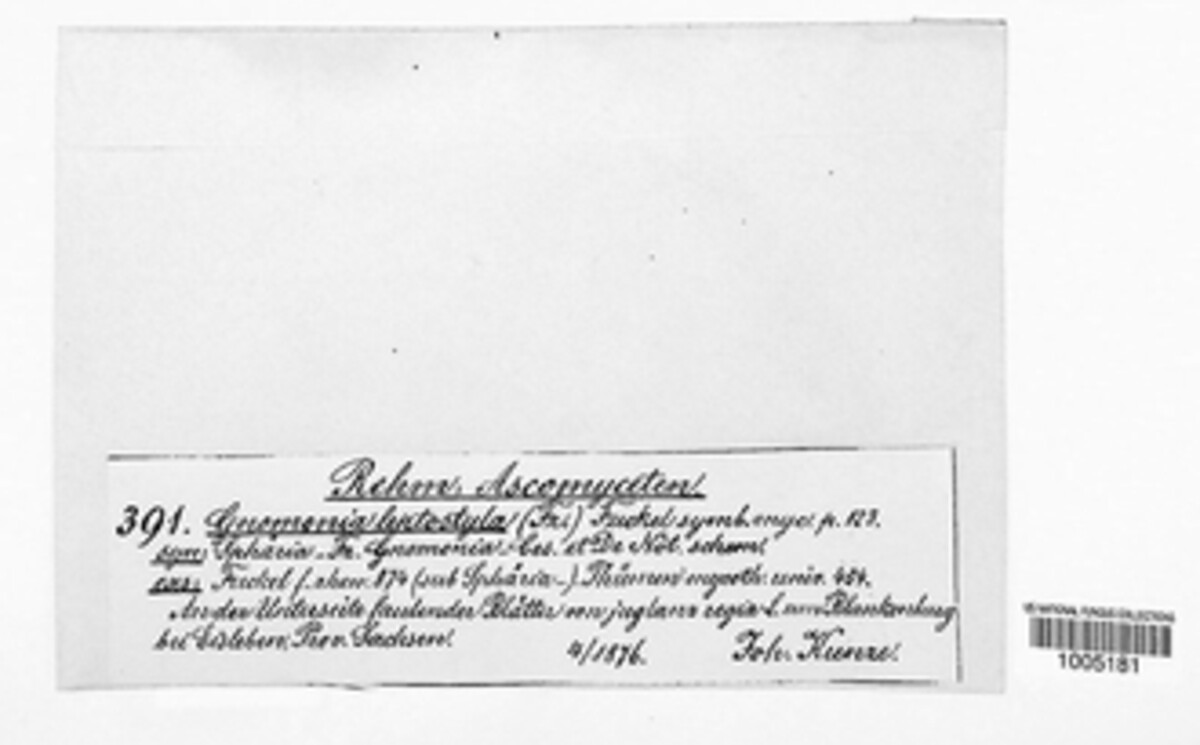 Rehm. Ascomyceten.
391. Gnomonia leptostyla (Fr.) Fuckel symb. myc. p. 123.
syn: Sphäria – Fr. Gnomonia – Ces. et De Not. schem.
exs: Fuckel f. rhen. 874 (sub Sphäria –). Thümen mycoth. univ. 454.
An der Unterseite faulender Blätter von juglans regia L. am
bei Eisleben, Prov. Sachsen.
4/1876.
Joh. Kunze.
US NATIONAL FUNGUS COLLECTIONS
1005181